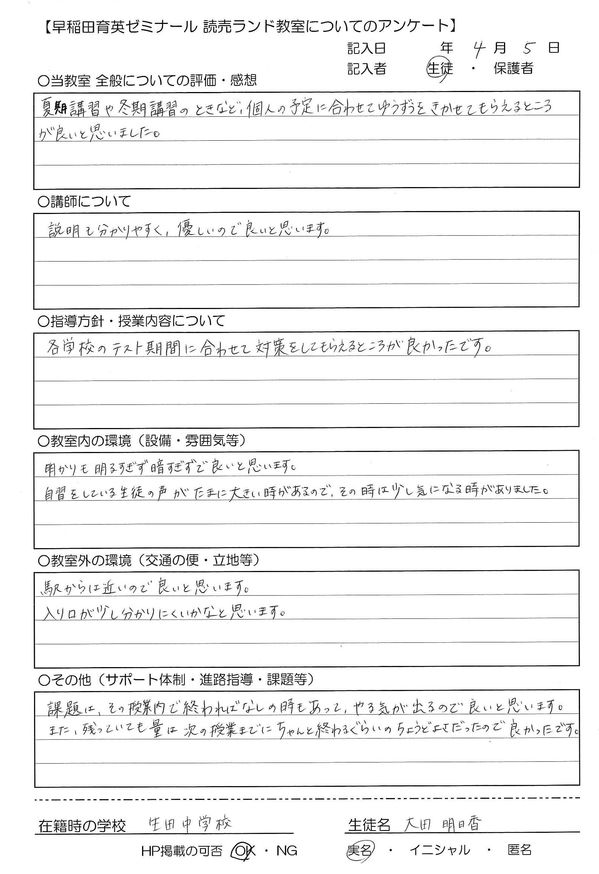 【早稲田育英ゼミナール 読売ランド教室についてのアンケート】
記入日 年 4月 5日
記入者 生徒 ・ 保護者
〇当教室 全般についての評価・感想
夏期講習や冬期講習のときなど、個人の予定に合わせてゆうずうをきかせてもらえるところ
が良いと思いました。
〇講師について
説明も分かりやすく、優しいので良いと思います。
〇指導方針・授業内容について
各学校のテスト期間に合わせて対策をしてもらえるところが良かったです。
〇教室内の環境（設備・雰囲気等）
明かりも明るすぎず暗すぎずで良いと思います。
自習をしている生徒の声がたまに大きい時があるので、その時は少し気になる時がありました。
〇教室外の環境（交通の便・立地等）
駅からは近いので良いと思います。
入り口が少し分かりにくいかなと思います。
〇その他（サポート体制・進路指導・課題等）
課題は、その授業内で終わればなしの時もあって、やる気が出るので良いと思います。
また、残っていても量は次の授業までにちゃんと終わるぐらいのちょうどよさだったので良かったです。
在籍時の学校 生田中学校 生徒名 大田 明日香
HP掲載の可否 OK・NG 実名 ・ イニシャル ・ 匿名